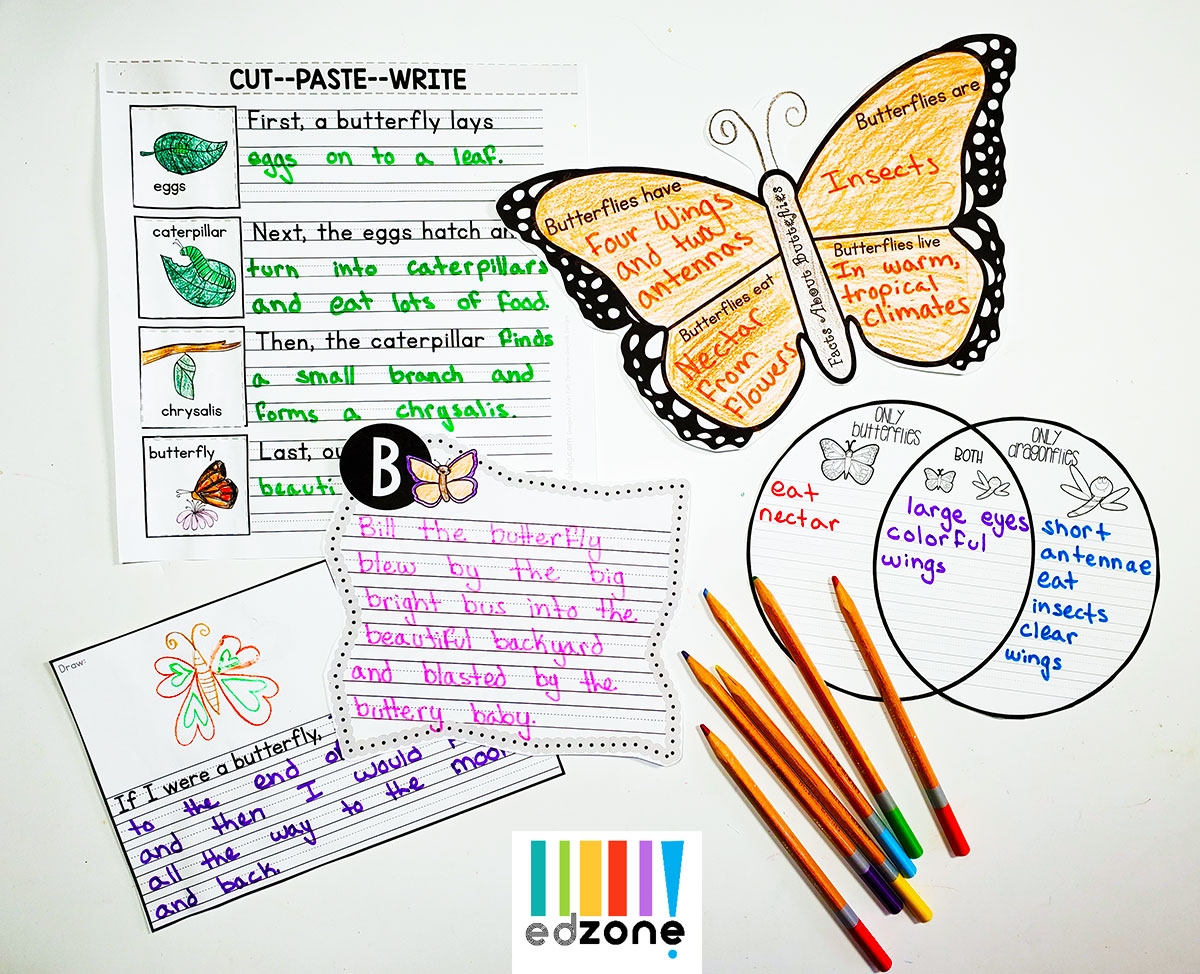 CUT--PASTE--WRITE
eggs
First, a butterfly lays
eggs on to a leaf.
caterpillar
Next, the eggs hatch
turn into caterpillars
and eat lots of food.
chrysalis
Then, the caterpillar finds
a small branch and
forms a chrysalis.
butterfly
Last,
Butterflies have
Four Wings
and two
antennas
Butterflies are
Insects
Butterflies eat
Nectar
From
Flowers
Butterflies live
In warm,
tropical
climates
Facts About Butterflies
B
Bill the butterfly
blew by the big
bright bus into the
beautiful backyard
and blasted by the
buttery baby.
ONLY
butterflies
eat
nectar
BOTH
large eyes
colorful
wings
ONLY
dragonflies
short
antennae
eat
insects
clear
wings
Draw:
If I were a butterfly,
to the end
and then I would
all the way to the
and back.
edzone